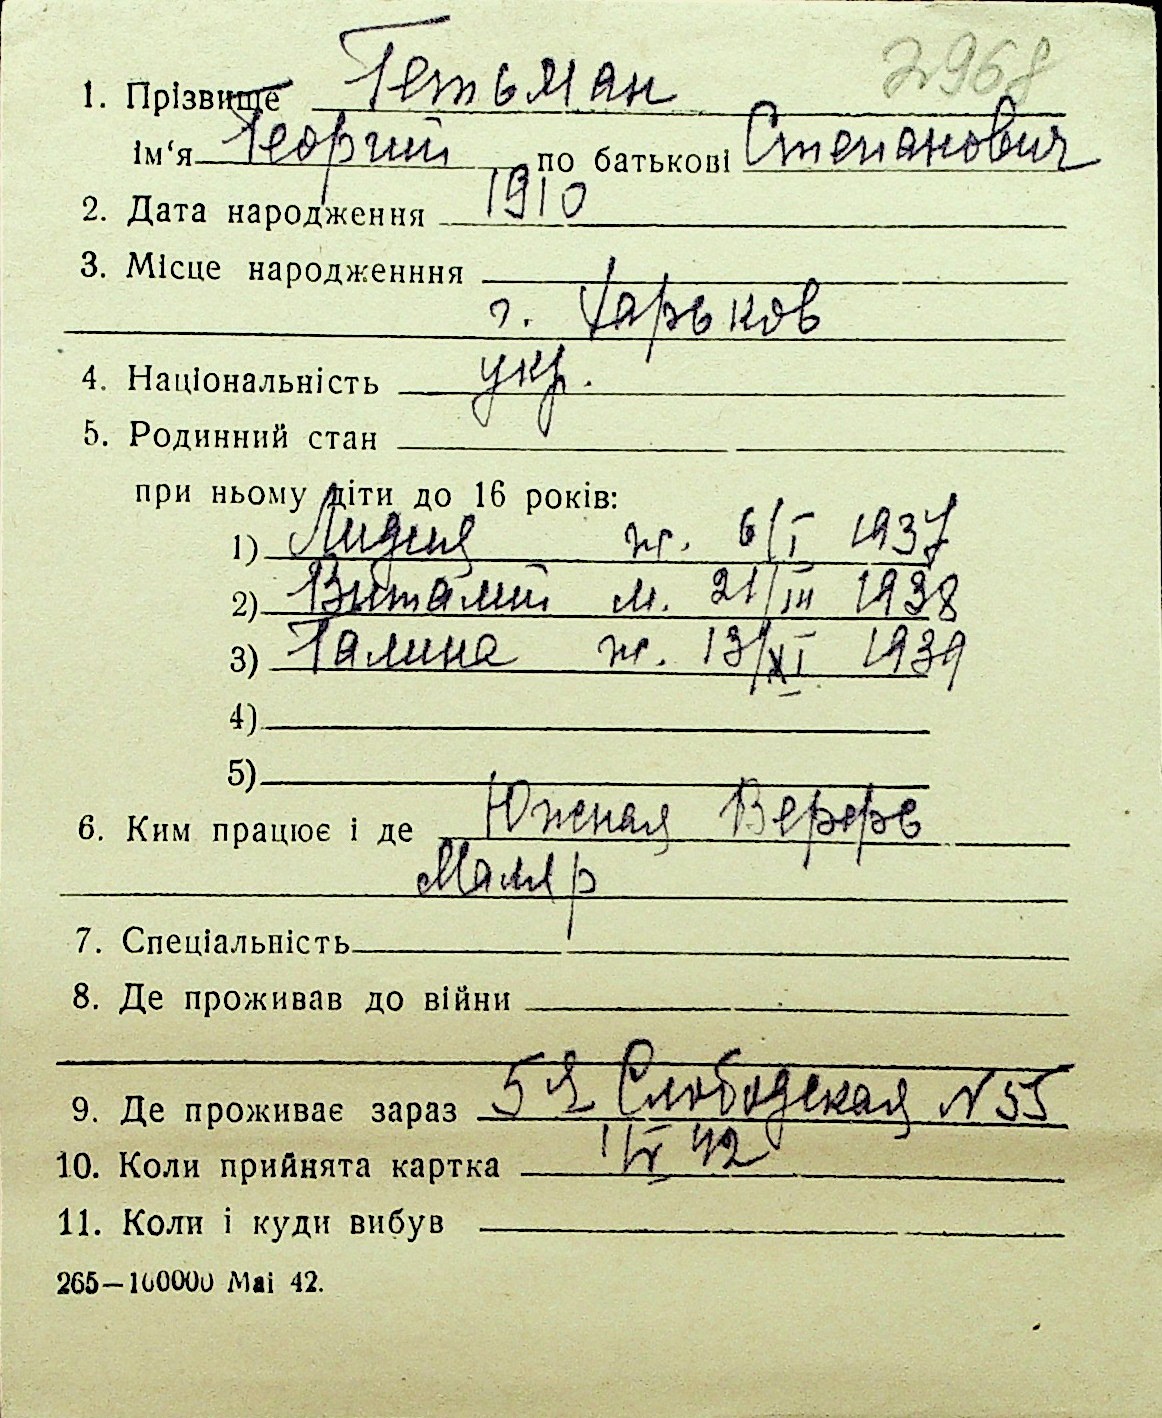 2968
1. Прізвище Гетьман
ім‘я Георгий по батькові Степанович
2. Дата народження 1910
3. Місце народженння
г. Харьков
4. Національність укр.
5. Родинний стан
при ньому діти до 16 років:
1) Лидия ж. 6/I 1937
2) Виталий м. 21/III 1938
3) Галина ж. 13/XI 1939
4)
5)
6. Ким працює і де Южная Верфь
Маляр
7. Спеціальність
8. Де проживав до війни
9. Де проживає зараз 5я Слободская N 55
10. Коли прийнята картка 42
11. Коли і куди вибув
265—100000 Mai 42.